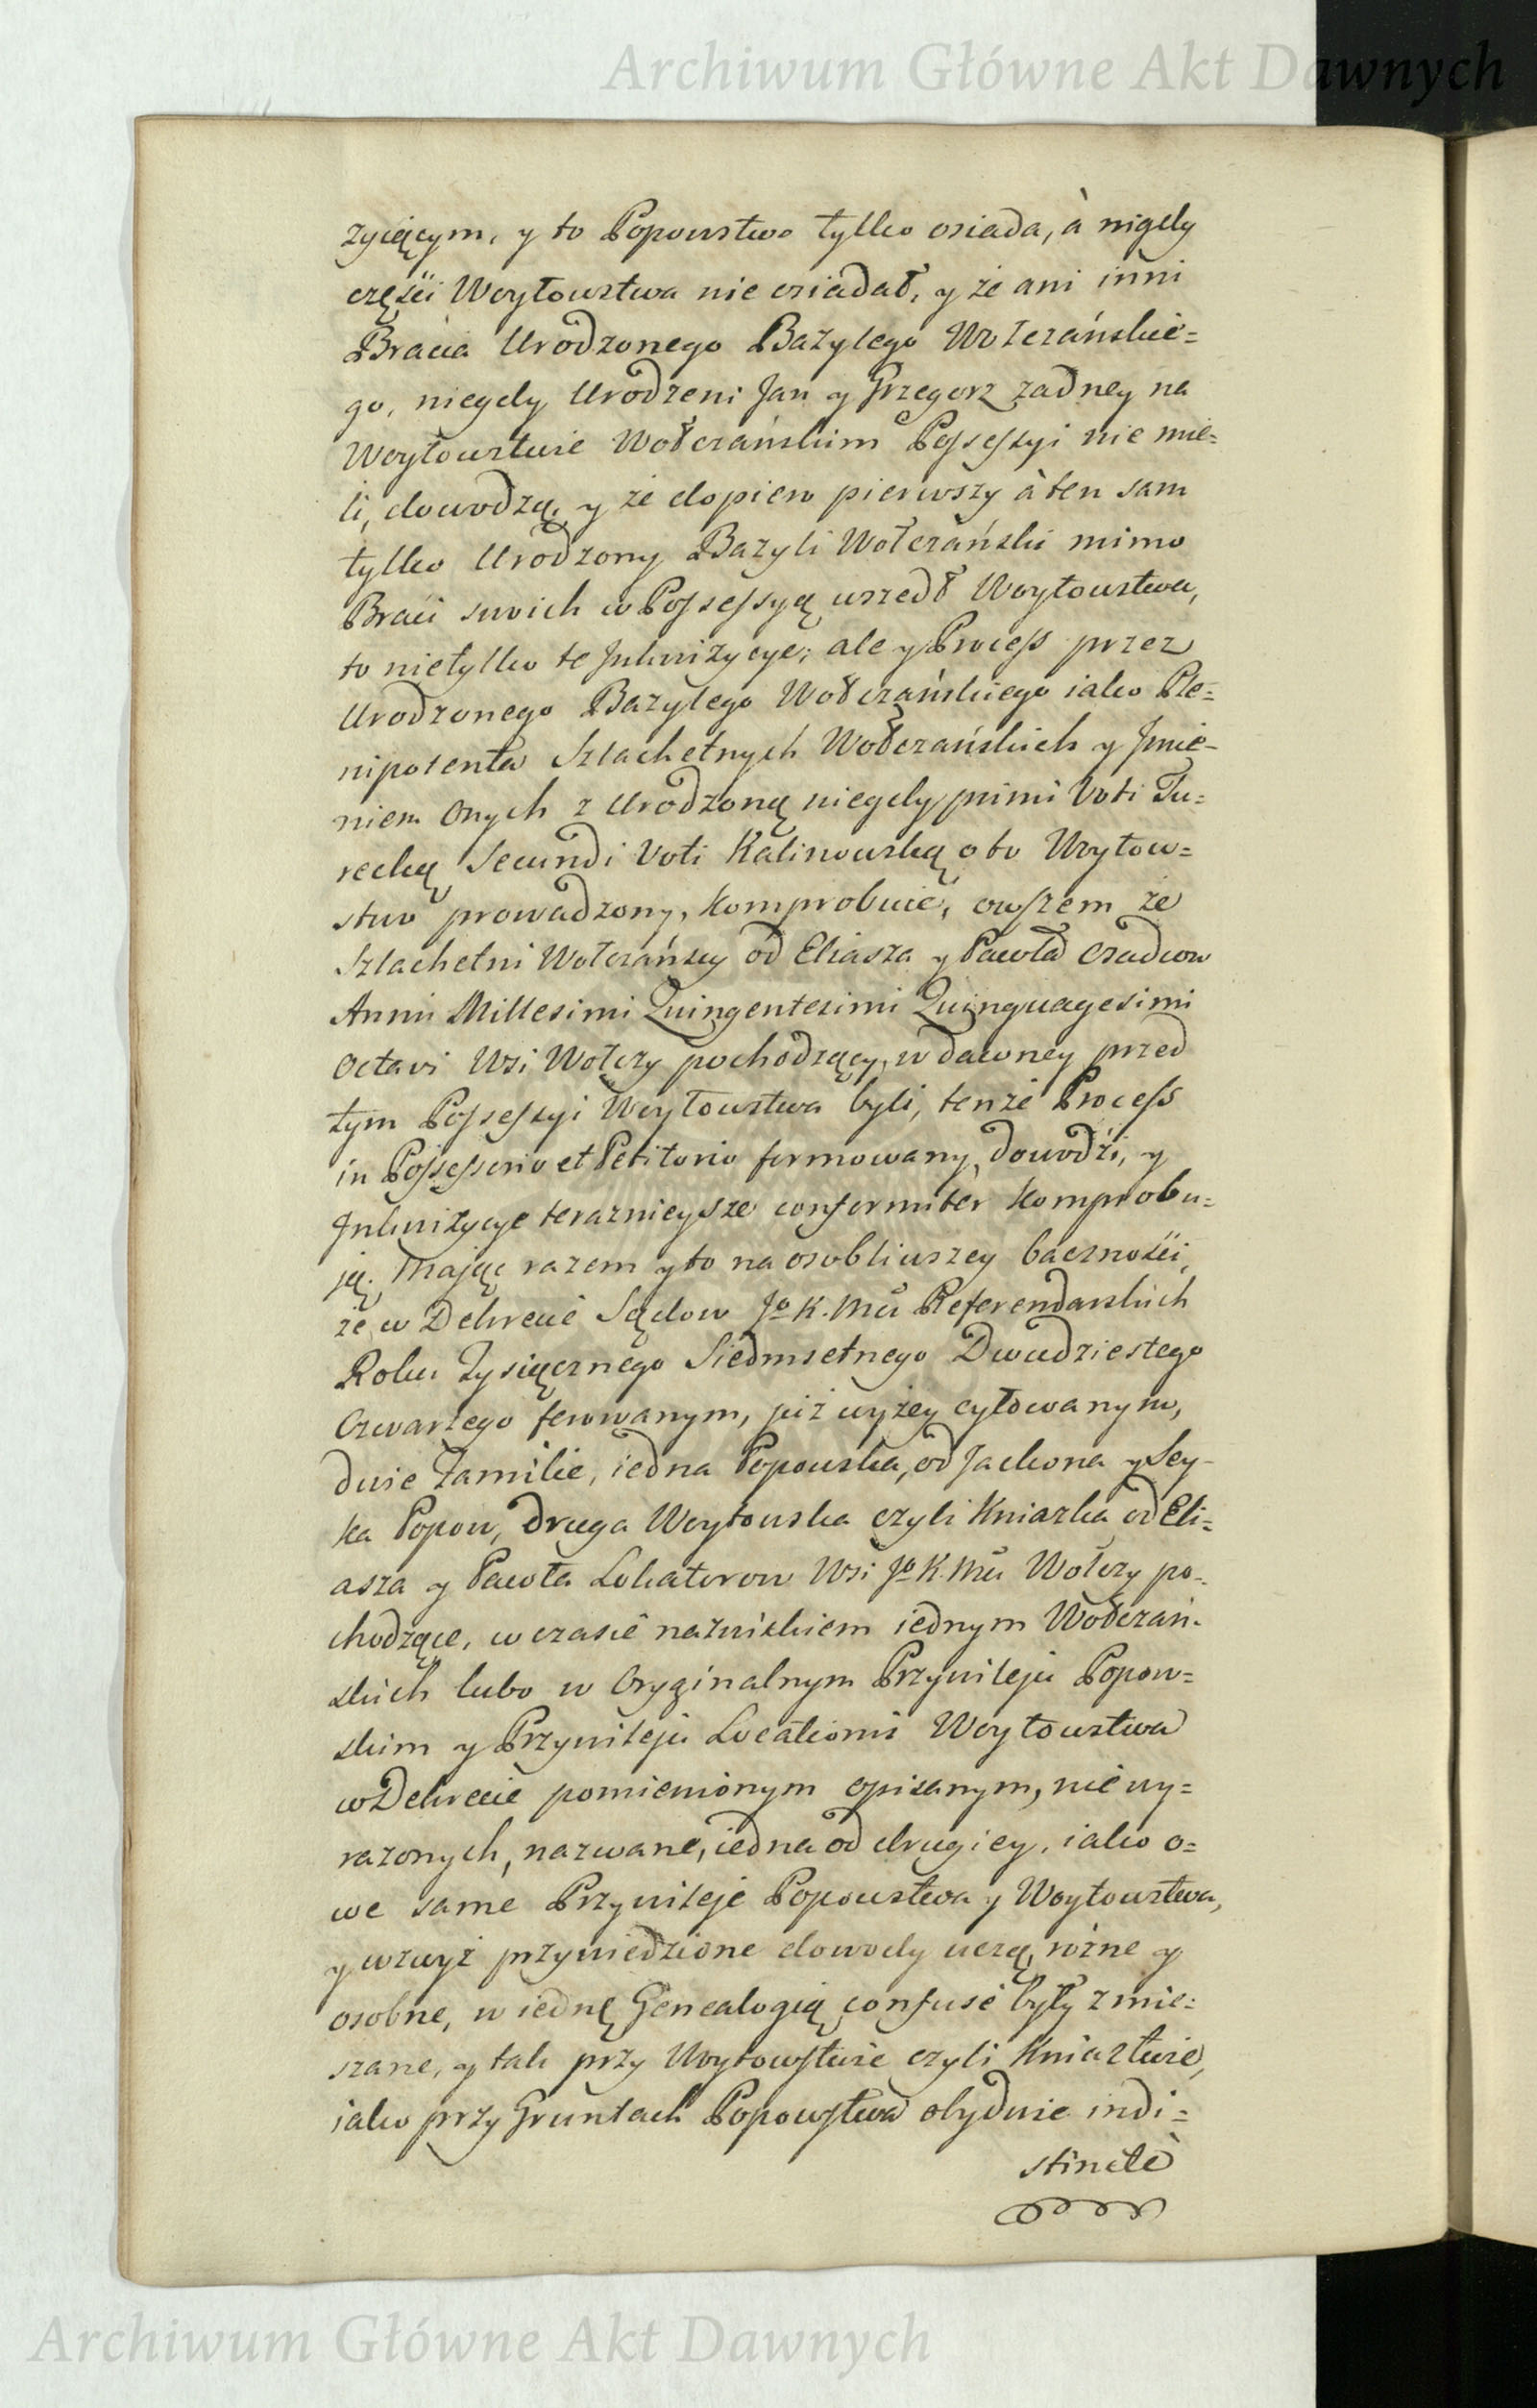 Archiwum Główne Akt Dawnych
żyiącym, y to Popowstwo tylko osiada, à nigdy
częśći Woytowstwa nie osiadał, y że ani inni
Bracia Urodzonego Bazylego Wołczańskie=
go, niegdy Urodzeni Jan y Grzegorz żadney na
Woytowstwie Wołczańskim Possessyi nie mie=
li, dowodzą, y że dopiero pierwszy à ten sam
tylko Urodzony Bazyli Wołczański mimo
Braci swoich w Possessyą wszedł Woytowstwa,
to nietylko te Inkwizycye, ale y Process przez
Urodzonego Bazylego Wołczańskiego iako Ple=
nipotenta Szlachetnych Wołczańskich y Jmie=
niem Onych z Urodzoną niegdy primi Voti Tu=
recką Secundi Voti Kalinowską o to Woytow=
stwo prowadzony, komprobuie, owszem że
Szlachetni Wołczańscy od Eliasza y Pawła Osadcow
Anni Millesimi Quingentesimi Quinquagesimi
Octavi Wsi Wołczy pochodzący, w dawney przed
tym Possessyi Woytowstwa byli, tenże Process
in Possessorio et Petitorio formowany, dowodźi, y
Inkwizycye terazniejsze conformiter komprobu=
ją. Mając razem y to na osobliwszey bacznośći,
że w Dekrecie Sądow Jo K. Mći Referendarskich
Roku Tysiącznego Siedmsetnego Dwudziestego
Czwartego ferowanym, już wyżey cytowanym,
dwie Familie, iedna Popowska, od Jackona y Sey-
ka Popow, druga Woytowska czyli Kniazka od Eli=
asza y Pawła Lokatorow Wsi Jo K. Mći Wołczy po=
chodzące, w czasie nazwiskiem iednym Wołczań=
skich lubo w Oryginalnym Przywileju Popow=
skim y Przywileju Locationis Woytowstwa
w Dekrecie pomienionym opisanym, nie wy=
rażonych, nazwane, iedna od drugiey, iako o=
we same Przywileje Popowstwa y Woytowstwa,
y wzwyż przywiedzione dowody uczą, rożne y
osobne, w iednę Genealogią confuse były zmie=
szane, y tak przy Woytowstwie czyli Kniaztwie,
iako przy Gruntach Popowstwa obydwie indi=
stincte
Archiwum Główne Akt Dawnych